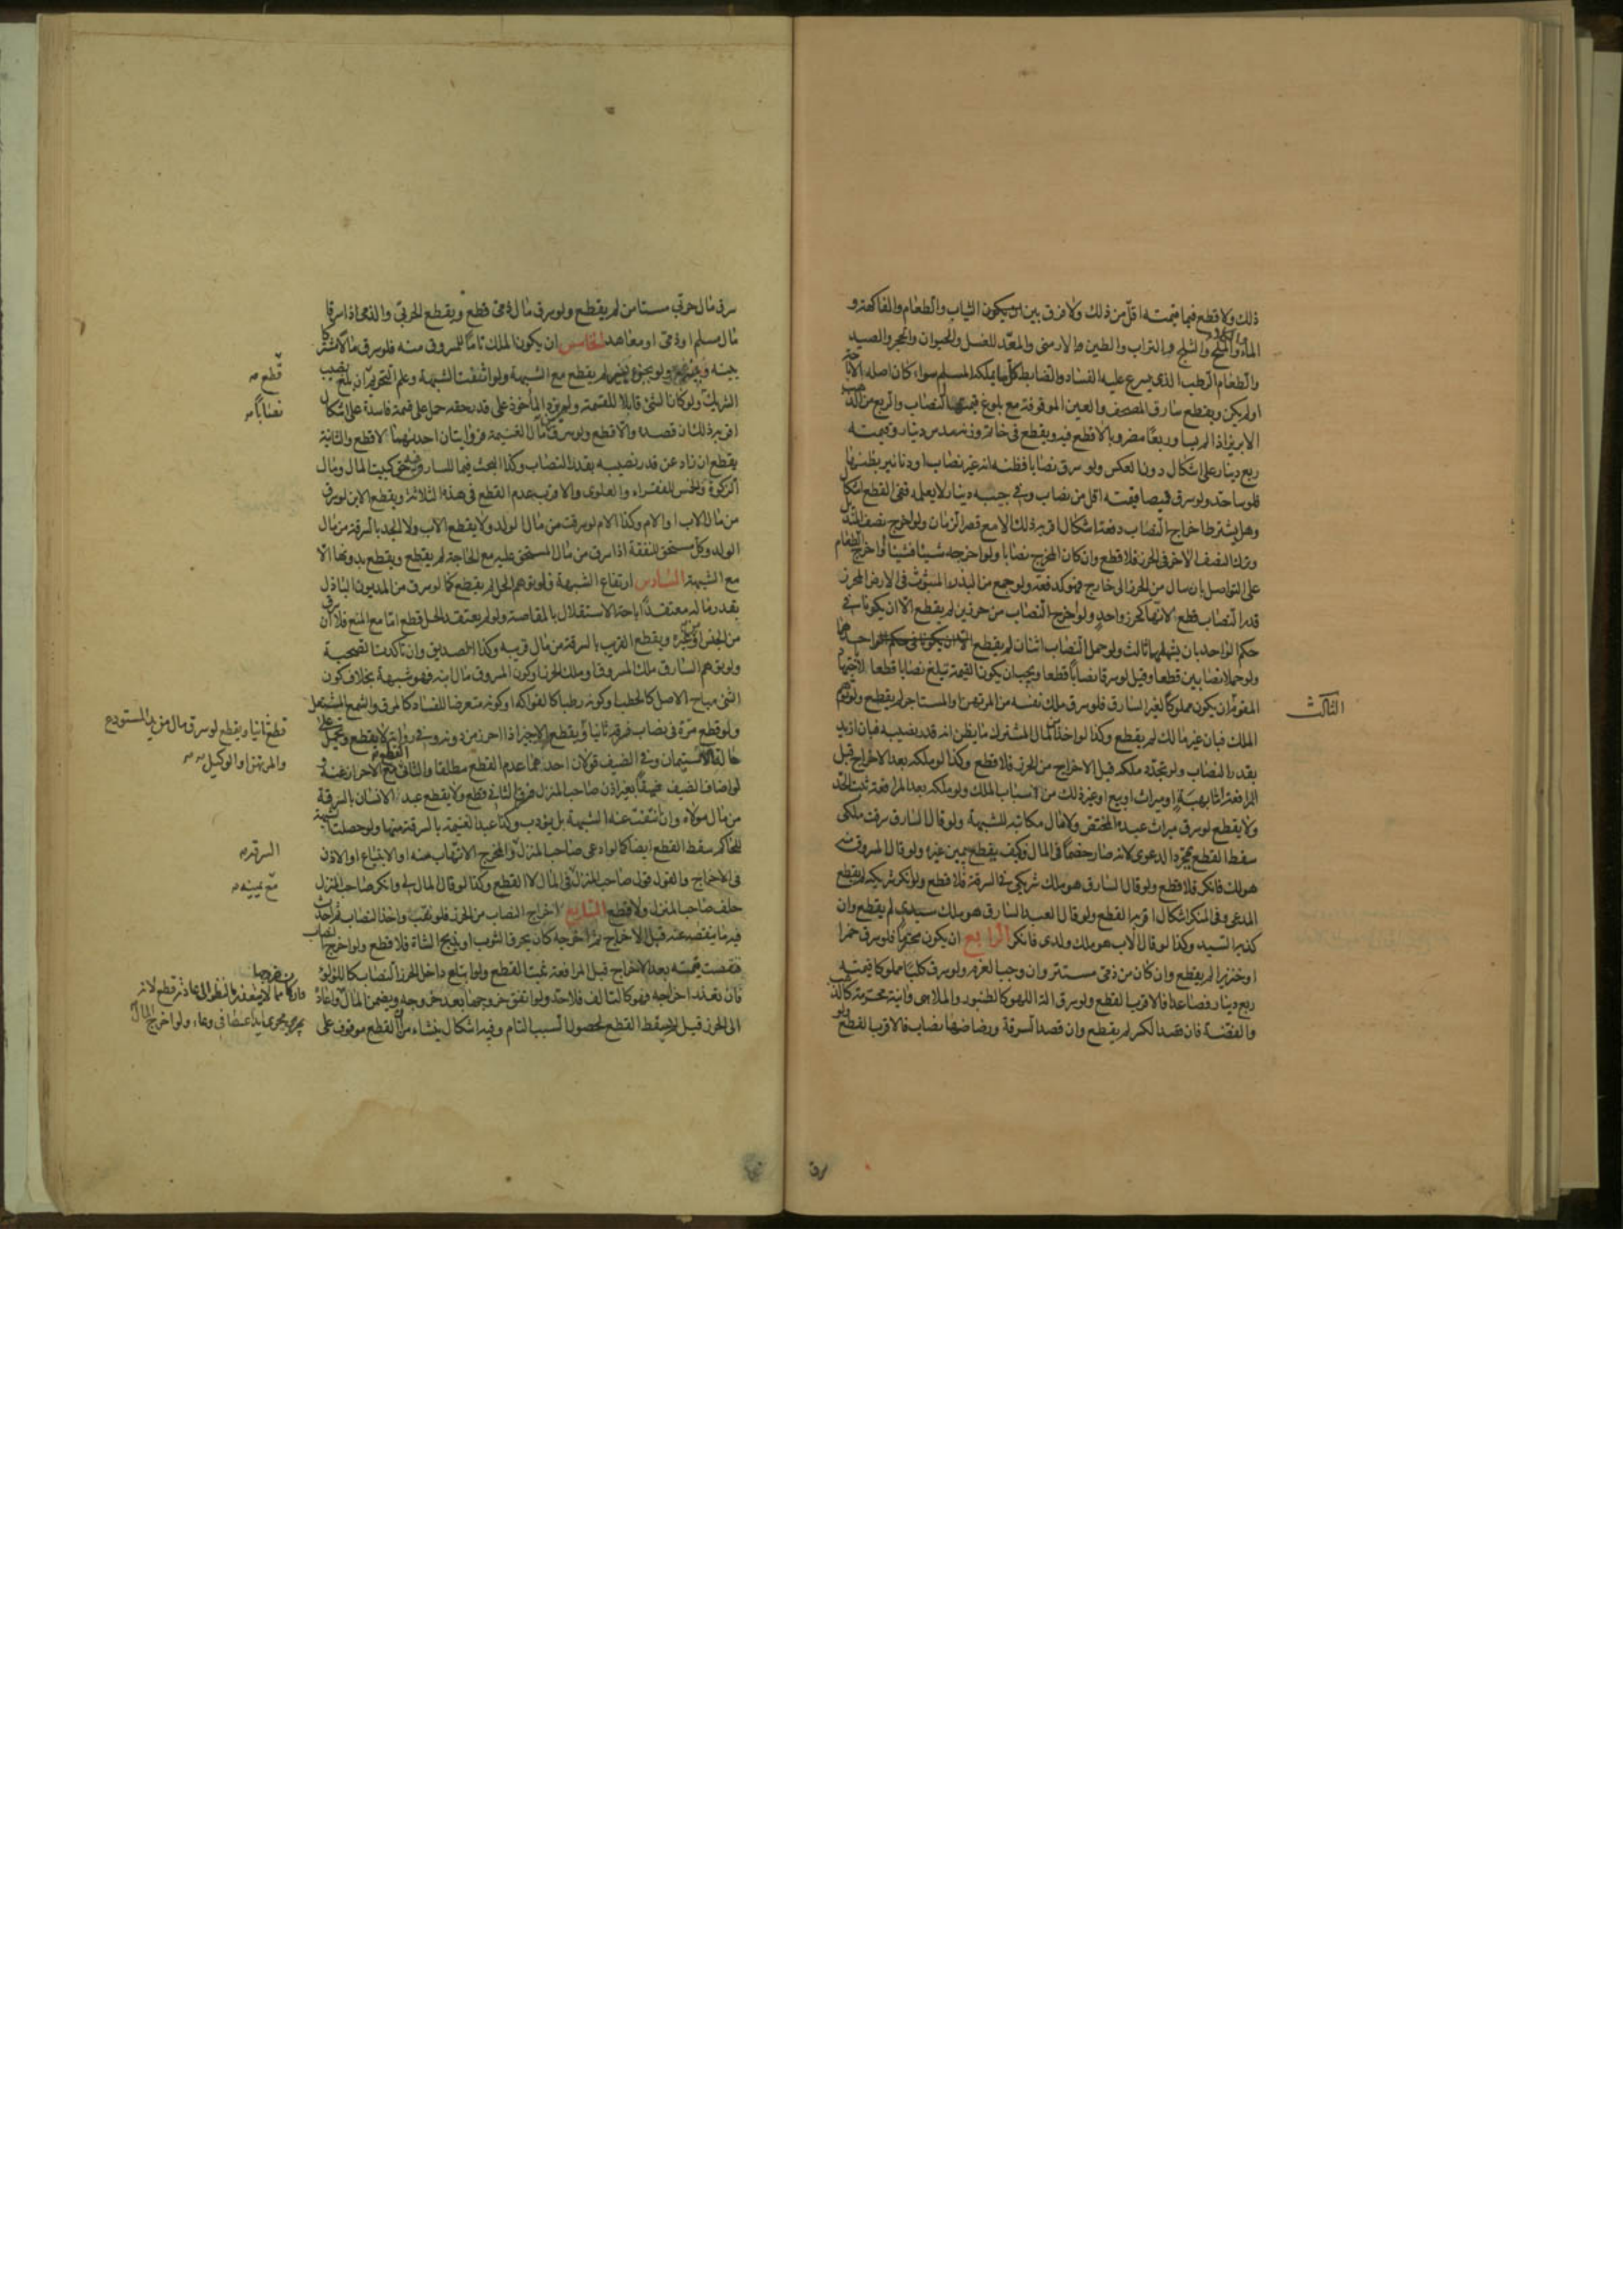 ذلك ولا قطع فيما قيمته اقل من ذلك ولا فرق بين ان يكون الثياب والطعام والفاكهة و
الماء والملح والثلج والتراب والطين الارمنى والمعد للغسل والحيوان والحجر والصيد
والطعام الرطب الذى يسرع عليه الفساد والضابط كل ما يملكه المسلم سواء كان اصله الاباحة
اولم يكن ويقطع سارق المصحف والعين الموقوفة مع بلوغ قيمتها النصاب والربع من الذهب
الابريز اذا لم يساو ربعا مضروبا لا قطع فيه ويقطع فى خاتم وزنه سدس دينار وقيمته
ربع دينار على اشكال دون العكس ولو سرق نصابا فظنه انه غير نصاب او دنانير يظنها
فلوسا حد ولو سرق قميصا قيمته اقل من نصاب وفى جيبه دينار لا يعلمه ففى القطع اشكال
وهل يشترط اخراج النصاب دفعة اشكال اقربه ذلك الا مع قصر الزمان ولو اخرج نصف المنديل
وترك النصف الاخر فى الحرز فلا قطع وان كان المخرج نصابا ولو اخرجه شيئا فشيئا او اخرج الطعام
على التواصل بارسال من الحرز الى خارج فهو كدفعة ولو جمع من البذر المبثوث فى الارض المحرز
قدر النصاب قطع لانها كحرز واحد ولو اخرج النصاب من حرزين لم يقطع الا ان يكونا فى
حكم الواحد بان يشملهما ثالث ولو حمل النصاب اثنان لم يقطع احدهما
ولو حملا نصابين قطعا وقيل لو سرقا نصابا قطعا ويجب ان يكون القيمة تبلغ نصابا قطعا لا باجتهاد
الثالث
المقوم ان يكون مملوكا لغير السارق فلو سرق ملك نفسه من المرتهن او المستاجر لم يقطع ولو توهم
الملك فبان غير مالك لم يقطع وكذا لو اخذ من المال المشترك ما يظن انه قدر نصيبه فبان ازيد
بقدر النصاب ولو تجدد ملكه قبل الاخراج من الحرز فلا قطع وكذا لو ملكه بعد الاخراج قبل
المرافعة اما بهبة او ميراث او بيع او غير ذلك من الاسباب الملك ولو ملكه بعد المرافعة ثبت الحد
ولا يقطع لو سرق ميراث عبده المختص ولا مال مكاتبه للشبهة ولو قال السارق سرقت ملكى
سقط القطع بمجرد الدعوى لانه صار خصما فى المال وكيف يقطع بيمين غيره ولو قال المسروق منه
هو لك فانكر فلا قطع ولو قال السارق هو ملك شريكى فى السرقة فلا قطع ولو انكر شريكه لم يقطع
المدعى وفى المنكر اشكال اقربه القطع ولو قال العبد السارق هو ملك سيدى لم يقطع وان
كذبه السيد وكذا لو قال الاب هو ملك ولدى فانكر الرابع ان يكون محترما فلو سرق خمرا
او خنزيرا لم يقطع وان كان من ذمى مستتر وان وجب الغرم ولو سرق كلبا مملوكا قيمته
ربع دينار فصاعدا فالاقرب القطع ولو سرق الة اللهو كالطنبور والملاهى وانية محترمة كالذهب
والفضة فان قصد الكسر لم يقطع وان قصد السرقة ورضاضها نصاب فالاقرب القطع ولو
سرق
سرق مال حربى مستامن لم يقطع ولو سرق مال ذمى قطع ويقطع الحربى والذمى اذا سرقا
مال مسلم او ذمى او معاهد الخامس ان يكون الملك تاما للمسروق منه فلو سرق مالا مشتركا
بينه وبين غيره ولو بجزء يسير لم يقطع مع الشبهة ولو انتفت الشبهة وعلم التحريم ان بلغ نصيب
قطع
الشريك ولو كان الشئ قابلا للقسمة ولم يزد المأخوذ على قدر حقه حمل على قسمة فاسدة على اشكال
نصابا
اقربه ذلك ان قصده والا قطع ولو سرق من مال الغنيمة فروايتان احدهما لا قطع والثانية
يقطع ان زاد عن قدر نصيبه بقدر النصاب وكذا البحث فيما للسارق فيه حق كبيت المال ومال
الزكوة والخمس للفقراء والعلوى والاقرب عدم القطع فى هذه الثلاثة ويقطع الابن لو سرق
من مال الاب او الام وكذا الام لو سرقت من مال الولد ولا يقطع الاب ولا الجد بالسرقة من مال
الولد وكل مستحق للنفقة اذا سرق من مال المستحق عليه مع الحاجة لم يقطع ويقطع بدونها الا
مع الشبهة السادس ارتفاع الشبهة فلو توهم الحل لم يقطع كما لو سرق من المديون الباذل
بقدر ماله معتقدا اباحة الاستقلال بالمقاصة ولو لم يعتقد الحل قطع اما مع المنع فلا سرق
من الجنس او غيره ويقطع القريب بالسرقة من مال قريبه وكذا الصديق وان تأكدت الصحبة
ولو توهم السارق ملك المسروق او ملك الحرز او كون المسروق مال ابنه فهو شبهة بخلاف كون
الشئ مباح الاصل كالحطب او كونه رطبا كالفواكه او كونه متعرضا للفساد كالمرق والشمع المشتعل
ولو قطع مرة فى نصاب فسرقه ثانيا ويقطع الاجير اذا احرز من دونه وفى رواية لا يقطع وتحمل على
قطع ثانيا ويقطع لو سرق مال من يد المستودع
والمرتهن او الوكيل
حالة الاستيمان وفى الضيف قولان احدهما عدم القطع مطلقا والثانى القطع مع الاحراز عنه و
لو اضاف الضيف ضيفا بغير اذن صاحب المنزل فسرق الثانى قطع ولا يقطع عبد الانسان بالسرقة
من مال مولاه وان انتفت عنه الشبهة بل يؤدب وكذا عبد الغنيمة بالسرقة منها ولو حصلت الشبهة
للحاكم سقط القطع ايضا كما لو ادعى صاحب المنزل والمخرج الاتهاب منه او الابتياع او الاذن
السرقة
فى الاخراج والقول قول صاحب المنزل فى المال لا القطع وكذا لو قال المال لى وانكر صاحب المنزل
مع يمينه
حلف صاحب المنزل ولا قطع السابع اخراج النصاب من الحرز فلو نقب واخذ النصاب فاحدث
فيه ما ينقصه عنه قبل الاخراج ثم اخرجه كان يحرق الثوب او يذبح الشاة فلا قطع ولو اخرج النصاب
فنقصت قيمته بعد الاخراج قبل المرافعة ثبت القطع ولو ابتلع داخل الحرز النصاب كاللؤلؤ
فان تعذر اخراجه فهو كالتالف فلا حد ولو اتفق خروجها بعد خروجه ويضمن المال
الى الحرز قبل لم يسقط القطع لحصول السبب التام وفيه اشكال ينشاء من ان القطع موقوف على